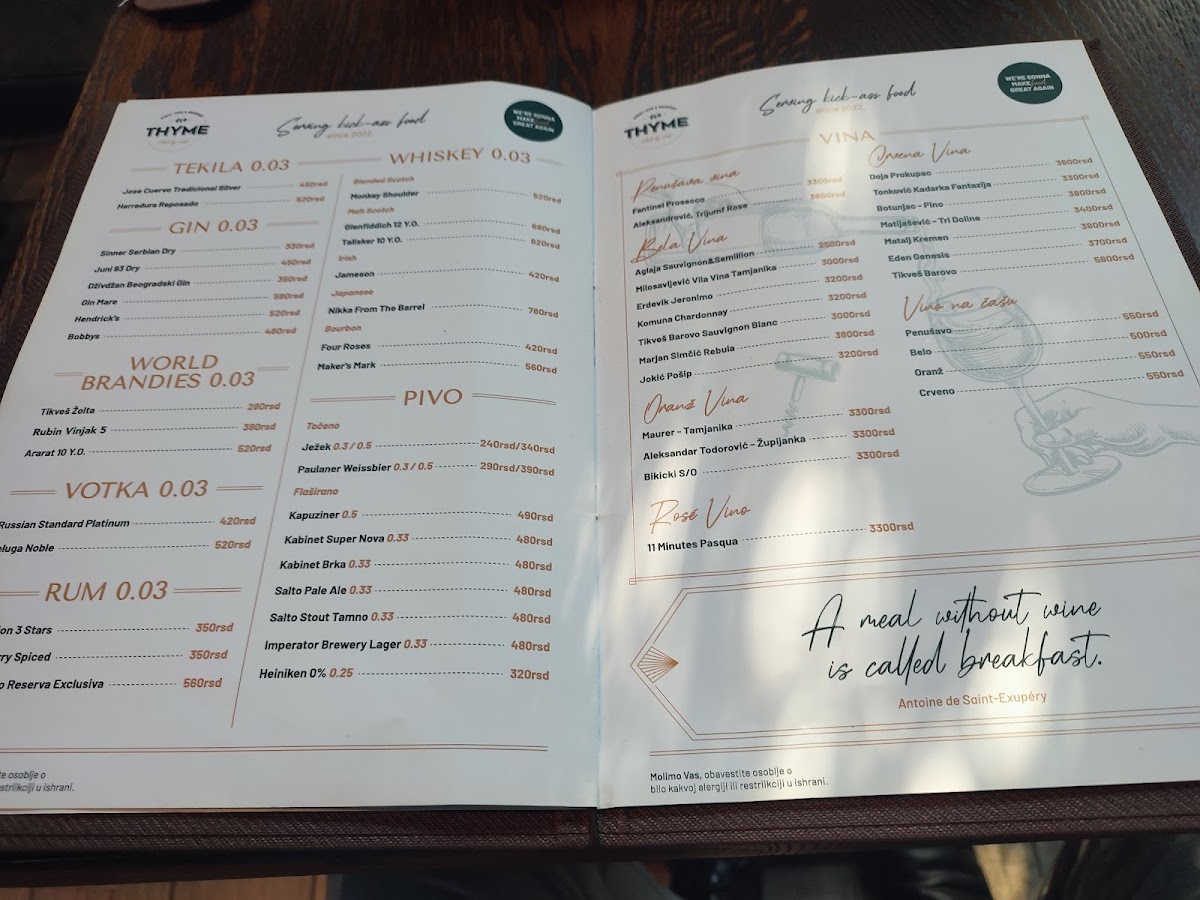 THYME
Serving kick-ass food
since 2022.
WE'RE GONNA
MAKE food
GREAT AGAIN
TEKILA 0.03
Jose Cuervo Tradicional Silver 450rsd
Herradura Reposado 520rsd
GIN 0.03
Sinner Serbian Dry 330rsd
Juni 93 Dry 450rsd
Dživdžan Beogradski Gin 350rsd
Gin Mare 580rsd
Hendrick's 520rsd
Bobbys 480rsd
WORLD
BRANDIES 0.03
Tikveš Žolta 280rsd
Rubin Vinjak 5 380rsd
Ararat 10 Y.O. 520rsd
VOTKA 0.03
Russian Standard Platinum 420rsd
eluga Noble 520rsd
RUM 0.03
ion 3 Stars 350rsd
rry Spiced 350rsd
o Reserva Exclusiva 560rsd
WHISKEY 0.03
Blended Scotch
Monkey Shoulder 520rsd
Malt Scotch
Glenfiddich 12 Y.O. 680rsd
Talisker 10 Y.O. 820rsd
Irish
Jameson 420rsd
Japanese
Nikka From The Barrel 780rsd
Bourbon
Four Roses 420rsd
Maker's Mark 560rsd
PIVO
Točeno
Ježek 0.3 / 0.5 240rsd/340rsd
Paulaner Weissbier 0.3 / 0.5 290rsd/390rsd
Flaširano
Kapuziner 0.5 490rsd
Kabinet Super Nova 0.33 480rsd
Kabinet Brka 0.33 480rsd
Salto Pale Ale 0.33 480rsd
Salto Stout Tamno 0.33 480rsd
Imperator Brewery Lager 0.33 480rsd
Heiniken 0% 0.25 320rsd
te osoblje o
striikciji u ishrani.
THYME
Serving kick-ass food
since 2022.
WE'RE GONNA
MAKE food
GREAT AGAIN
VINA
Penušava vina
Fantinel Prosecco 3300rsd
Aleksandrović, Trijumf Rose 3900rsd
Bela Vina
Aglaja Sauvignon&Semillion 2500rsd
Milosavljević Vila Vina Tamjanika 3000rsd
Erdevik Jeronimo 3200rsd
Komuna Chardonnay 3200rsd
Tikveš Barovo Sauvignon Blanc 3000rsd
Marjan Simčič Rebula 3800rsd
Jokić Pošip 3200rsd
Oranž Vina
Maurer - Tamjanika 3300rsd
Aleksandar Todorović - Župljanka 3300rsd
Bikicki S/O 3300rsd
Rosé Vino
11 Minutes Pasqua 3300rsd
Crvena Vina
Doja Prokupac 3600rsd
Tonković Kadarka Fantazija 3300rsd
Botunjac - Pino 3800rsd
Matijašević - Tri Doline 3400rsd
Matalj Kremen 3800rsd
Eden Genesis 3700rsd
Tikveš Barovo 5800rsd
Vino na čašu
Penušavo 550rsd
Belo 500rsd
Oranž 550rsd
Crveno 550rsd
A meal without wine
is called breakfast.
Antoine de Saint-Exupéry
Molimo Vas, obavestite osoblje o
bilo kakvoj alergiji ili restriikciji u ishrani.